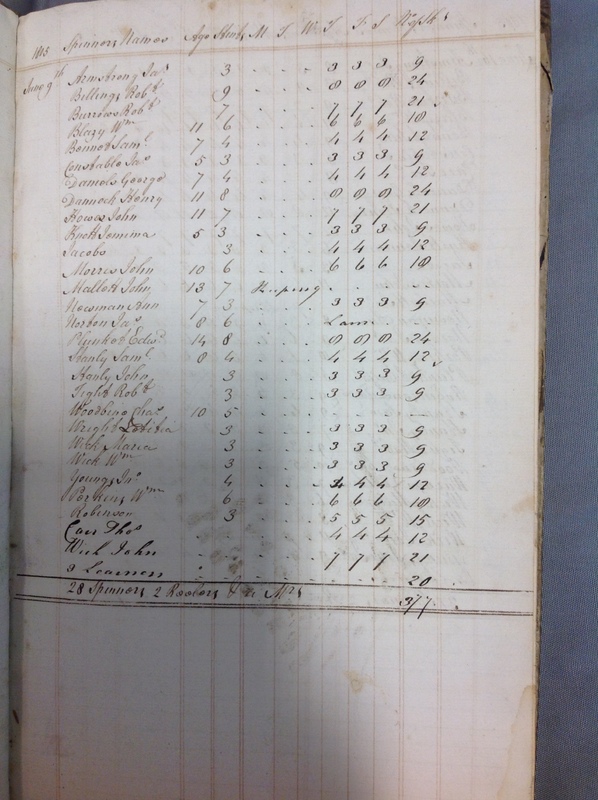 1815 Spinners Names Age Stent M. T. W. T. F. S. No of Sks
June 9th Armstrong Jas 3 . . . 3 3 3 9
Billings Robt 9 . . . 8 8 8 24
Burrows Robt 7 . . . 7 7 7 21
Blazy Wm 11 6 . . . 6 6 6 18
Bennet Saml 7 4 . . . 4 4 4 12
Constable Jas 5 3 . . . 3 3 3 9
Daniels George 7 4 . . . 4 4 4 12
Dannock Henry 11 8 . . . 8 8 8 24
Howes John 11 7 . . . 7 7 7 21
Knott Jemima 5 3 . . . 3 3 3 9
Jacobs 3 . . . 4 4 4 12
Morris John 10 6 . . . 6 6 6 18
Mallett John 13 7
Newman Ann 7 3 . . . 3 3 3 9
Norton Jas 8 6 . . . Lame . . .
Edwd 14 8 . . . 8 8 8 24
Stanly Saml 8 4 . . . 4 4 4 12
Stanly John 3 . . . 3 3 3 9
Tight Robt 3 . . . 3 3 3 9
Woodbine Chas 10 5 . . . . . .
Wright Letitia 3 . . . 3 3 3 9
Wick Maria 3 . . . 3 3 3 9
Wick Wm 3 . . . 3 3 3 9
Youngs 4 . . . 4 4 4 12
Perkins Wm 6 . . . 6 6 6 18
Robinson 3 . . . 5 5 5 15
Carr Thos . . . 4 4 4 12
Wick John . . . 7 7 7 21
3 Learners 20
28 Spinners 2 Reelers & a Mrs 377